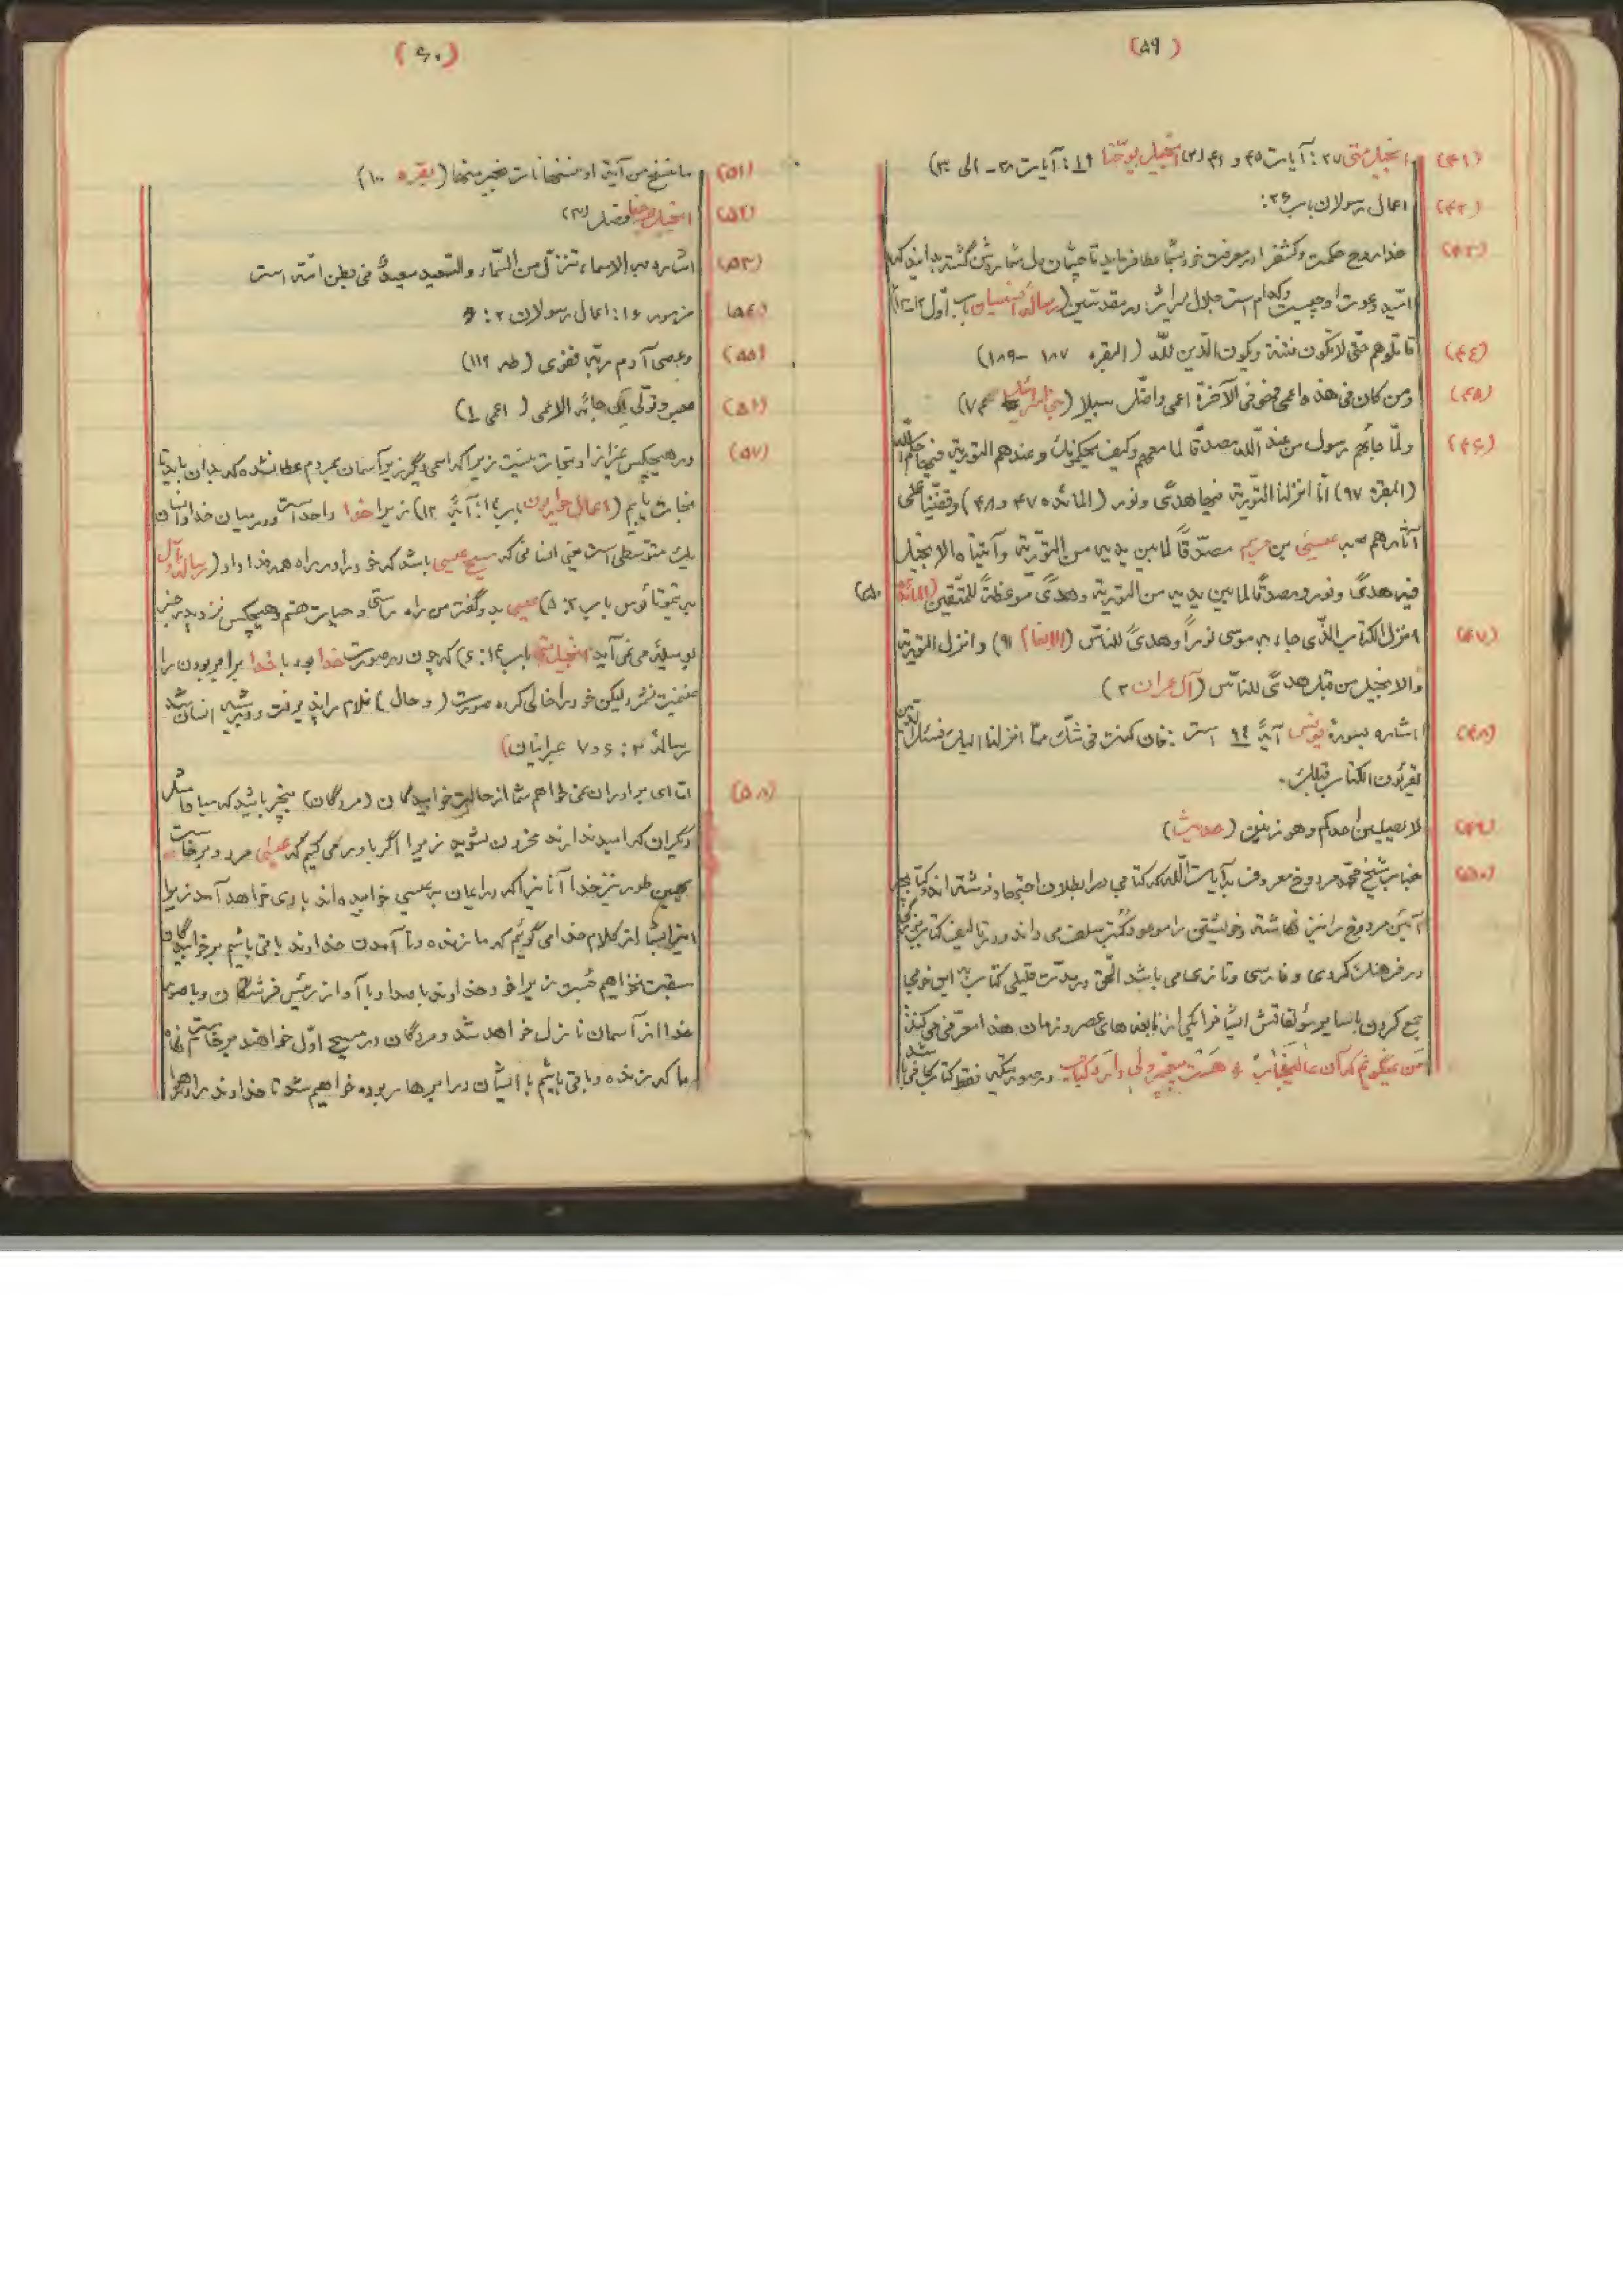 (۵۹)
(۴۱) انجیل متی ۲۷: آیات ۴۵ و ۴۶ (۲) انجیل یوحنا ۱۹: آیات ۲۸ - الی ۳۰)
(۴۲) اعمال رسولان باب ۲۶:
(۴۳) خدا روح حکمت و کشف را در معرفت خود بشما عطا فرماید تا چشمان دل شما روشن گشته بدانید که
امید دعوت او چیست و کدام است جلال میراث در مقدسین (رساله افسسیان باب اول
(۴۴) قاتلوهم حتی لا تکون فتنة و یکون الدین للّه (البقره ۱۸۷ - ۱۸۹)
(۴۵) و من کان فی هذه اعمی فهو فی الآخرة اعمی و اضل سبیلا (بنی اسرائیل ۷۴)
(۴۶) و لمّا جائهم رسول من عند اللّه مصدقا لما معهم و کیف یحکمونک و عندهم التوریة فیها حکم الله
(البقره ۹۷) انّا انزلنا التوریة فیها هدی و نور (المائده ۴۷ و ۴۸) و قفّینا علی
آثارهم بعیسی بن مریم مصدّقاً لما بین یدیه من التوریة و آتیناه الانجیل
فیه هدی و نور و مصدقاً لما بین یدیه من التوریة و هدی و موعظةً للمتّقین (المائده ۵۰)
(۴۷) انزل الکتاب الّذی جاء به موسی نوراً و هدیً للناس (الانعام ۹۱) و انزل التوریة
و الانجیل من قبل هدیً للناس (آل عمران ۲)
(۴۸) اشاره بسورۀ یونس آیۀ ۹۴ است: فان کنت فی شکّ ممّا انزلنا الیک فسئل الذین
یقرئون الکتاب قبلک.
(۴۹) لا یصلین احدکم و هو زنین (حدیث)
(۵۰) جناب شیخ محمد مردوخ معروف بآیات اللّه که کتابی در ابطلان اجتهاد نوشته اند و کتابچه
آئین مردوخ را نیز نگاشته و خویشتن را موعود کتب سلف می داند و در تألیف کتاب
در فرهنگ کردی و فارسی و تازی می باشد الحق در مدّت قلیلی کتاب باین خوبی
جمع کردن با سایر مؤلفاتش ایشا فرا یکی از نابغه های عصر و زمان هذا معرّفی می کند:
من نمیگویم که آن عالیجناب * هست پیغمبر ولی دارد کتاب در صورتیکه فقط کتاب کافی باشد
(۶۰)
(۵۱) ما ننسخ من آیة او ننسها نات بخیر منها (بقره ۱۰۰)
(۵۲) انجیل یوحنا فصل (۳)
(۵۳) اشاره به الاسماء تنزّل من السّماء و السّعید سعیدٌ فی بطن امّه است
(۵۴) مزمور ۱۶: اعمال رسولان ۲:
(۵۵) و عصی آدم ربّه فغوی (طه ۱۱۹)
(۵۶) عبس و تولّی ان جائه الاعمی (اعمی ۱)
(۵۷) در هیچکس غیر از او نجات نیست زیرا که اسمی دیگر زیر آسمان بمردم عطا نشده که بدان باید تا
نجات یابیم (اعمال حواریون باب ۴: آیۀ ۱۲) زیرا خدا واحد است و در میان خدا و انسان
یک متوسّطی است یعنی انسانی که مسیح عیسی باشد که خود را در راه همه فدا داد (رساله اول
به تیموتائوس باب ۲: ۵) عیسی بدو گفت من راه و راستی و حیات هستم و هیچکس نزد پدر جز
بوسیلۀ من نمی آید (انجیل باب ۱۴: ۶) که چون در صورت خدا بود با خدا برابر بودن را
غنیمت نشمرد لیکن خود را خالی کرده صورت (و حال) غلام را پذیرفت و در شبیه انسان شد
رسالۀ ۲: ۶ و ۷ عبرانیان)
(۵۸) امّا ای برادران نمی خواهم شما از حالت خوابیدگان (مردگان) بیخبر باشید که مبادا مثل
دیگران که امید ندارند محزون بشوید زیرا اگر باور می کنیم که عیسی مرد و برخاست
بهمین طور نیز خدا آنانیرا که در ایمان به عیسی خوابیده اند با وی خواهد آورد زیرا
اینرا بشما از کلام خدا می گوئیم که ما زنده و تا آمدن خداوند باقی باشیم بر خوابیدگان
سبقت نخواهیم جست زیرا خود خداوند با صدا و با آواز رئیس فرشتگان و با صور
خدا از آسمان نازل خواهد شد و مردگان در مسیح اوّل خواهند برخاست آنگاه
ما که زنده و باقی باشیم با ایشان در ابرها ربوده خواهیم شد تا خداوند را در هوا